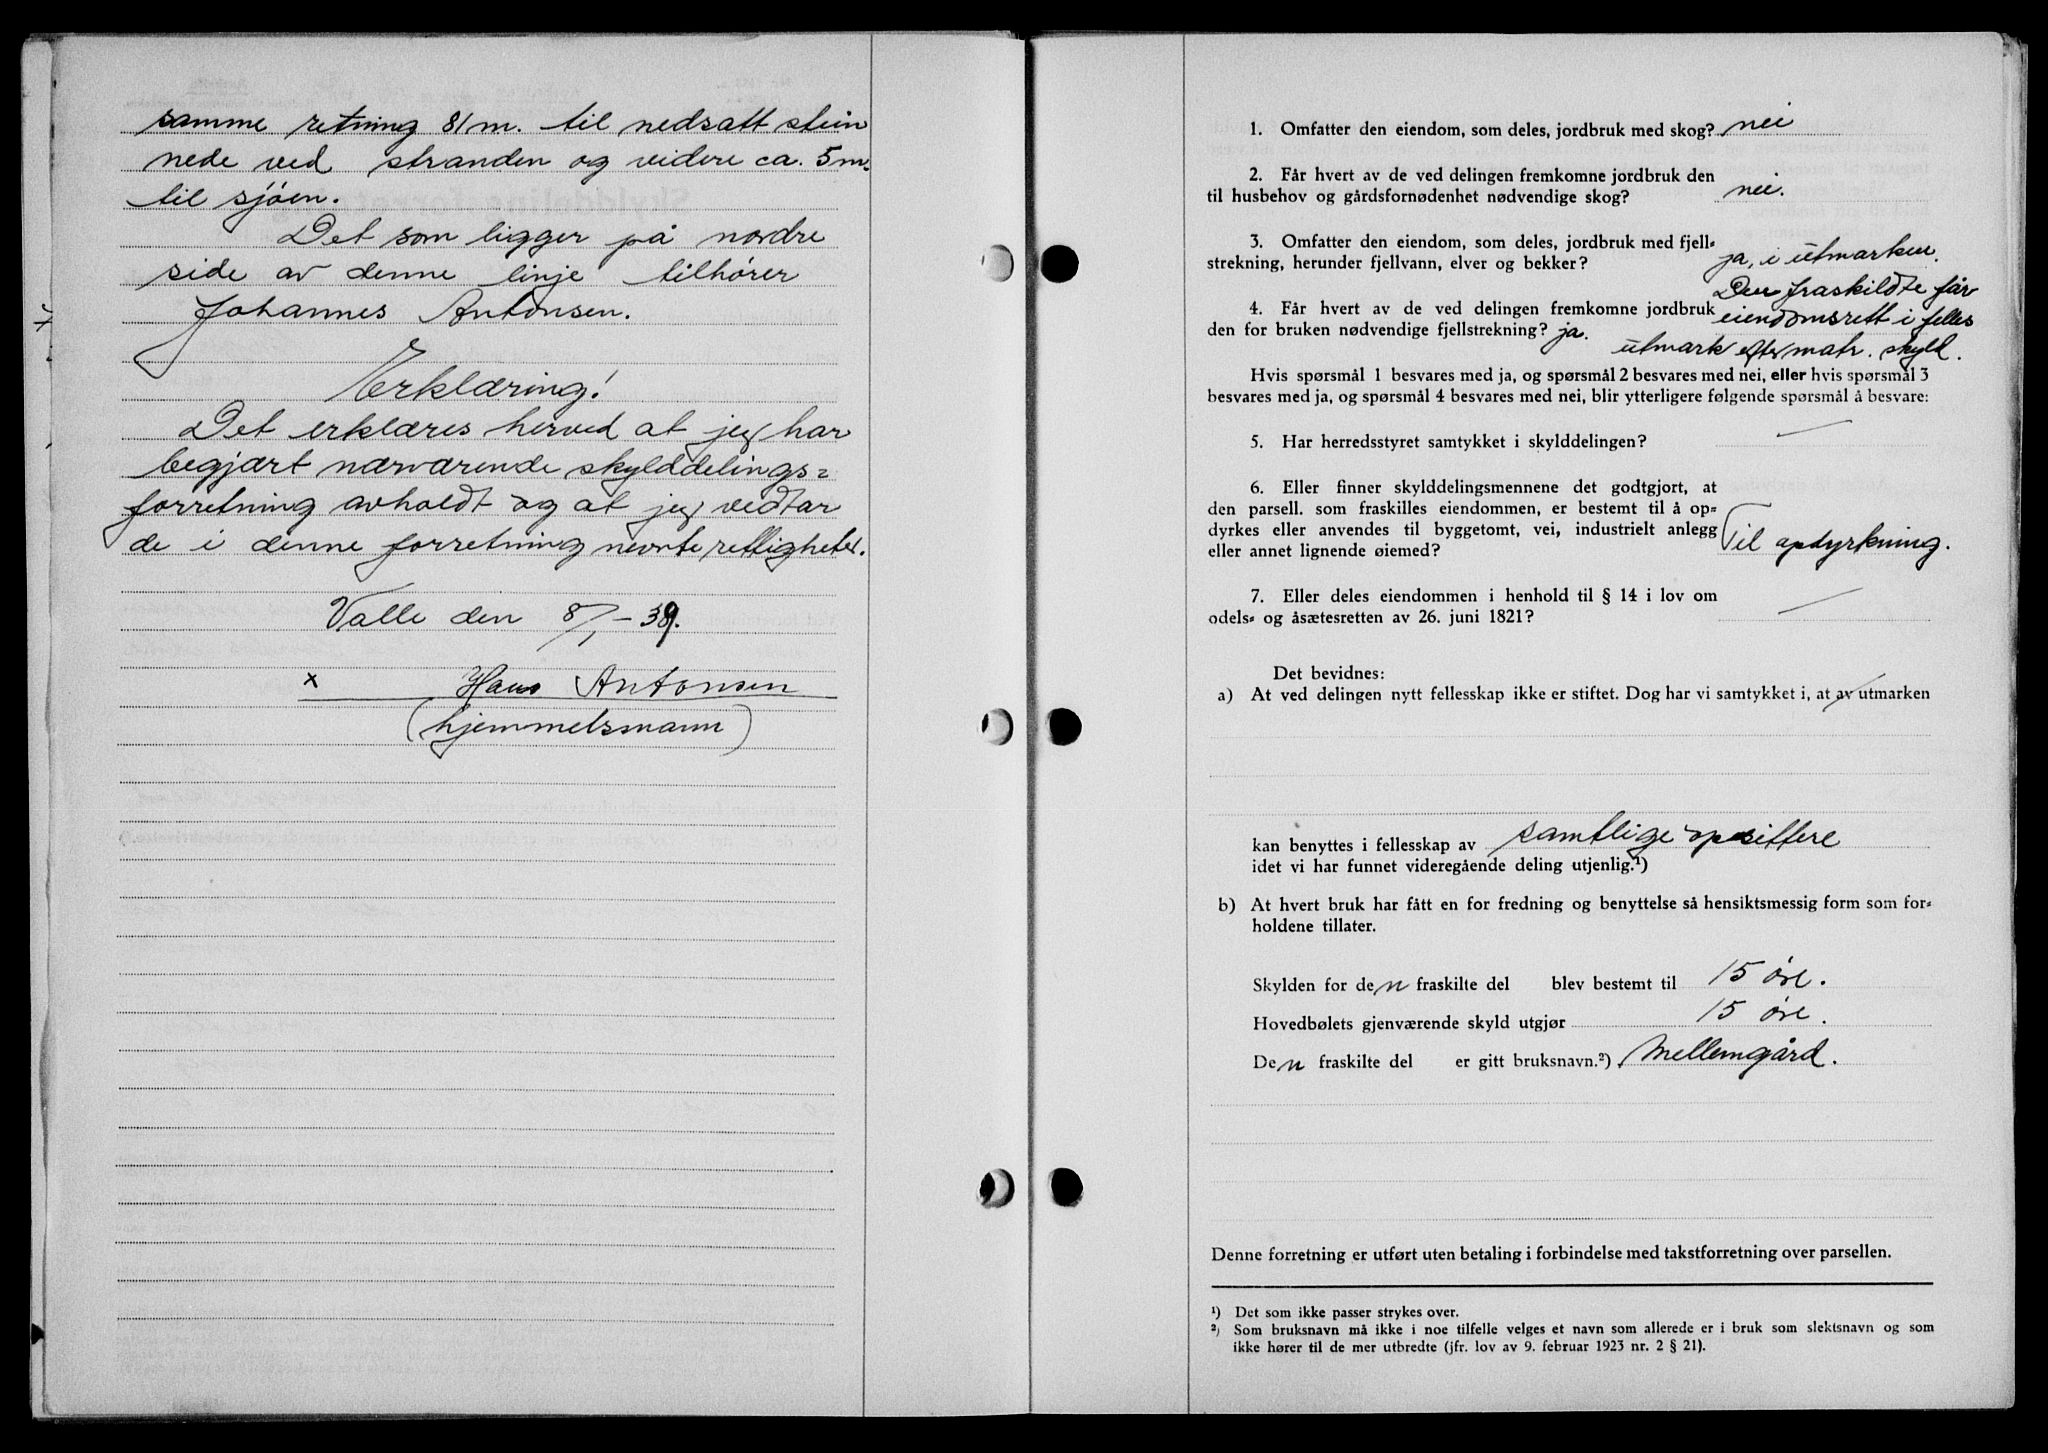 samme retning 81 m. til nedsatt stein
nede ved stranden og videre ca. 5 m.
til sjøen.
Det som ligger på nordre
side av denne linje tilhører
Johannes Antonsen.
Erklæring!
Det erklæres herved at jeg har
begjært nærværende skylddelings=
forretning avholdt og at jeg vedtar
de i denne forretning nevnte rettigheter.
Valle den 8/1 - 39.
x Hans Antonsen
(hjemmelsmann)
1. Omfatter den eiendom, som deles, jordbruk med skog? nei
2. Får hvert av de ved delingen fremkomne jordbruk den
til husbehov og gårdsfornødenhet nødvendige skog? nei.
3. Omfatter den eiendom, som deles, jordbruk med fjell=
strekning, herunder fjellvann, elver og bekker? ja, i utmarken.
Den fraskildte får
4. Får hvert av de ved delingen fremkomne jordbruk eiendomsrett i felles
den for bruken nødvendige fjellstrekning? ja. utmark efter matr. skyld.
Hvis spørsmål 1 besvares med ja, og spørsmål 2 besvares med nei, eller hvis spørsmål 3
besvares med ja, og spørsmål 4 besvares med nei, blir ytterligere følgende spørsmål å besvare:
5. Har herredsstyret samtykket i skylddelingen? —
6. Eller finner skylddelingsmennene det godtgjort, at
den parsell. som fraskilles eiendommen, er bestemt til å op=
dyrkes eller anvendes til byggetomt, vei, industrielt anlegg
eller annet lignende øiemed? Til opdyrkning.
7. Eller deles eiendommen i henhold til § 14 i lov om
odels= og åsætesretten av 26. juni 1821? —
Det bevidnes:
a) At ved delingen nytt fellesskap ikke er stiftet. Dog har vi samtykket i, at av utmarken
kan benyttes i fellesskap av samtlige opsittere
idet vi har funnet videregående deling utjenlig.¹)
b) At hvert bruk har fått en for fredning og benyttelse så hensiktsmessig form som for=
holdene tillater.
Skylden for den fraskilte del blev bestemt til 15 øre.
Hovedbølets gjenværende skyld utgjør 15 øre.
Den fraskilte del er gitt bruksnavn.²) Mellemgård.
Denne forretning er utført uten betaling i forbindelse med takstforretning over parsellen.
¹) Det som ikke passer strykes over.
²) Som bruksnavn må ikke i noe tilfelle velges et navn som allerede er i bruk som slektsnavn og som
ikke hører til de mer utbredte (jfr. lov av 9. februar 1923 nr. 2 § 21).